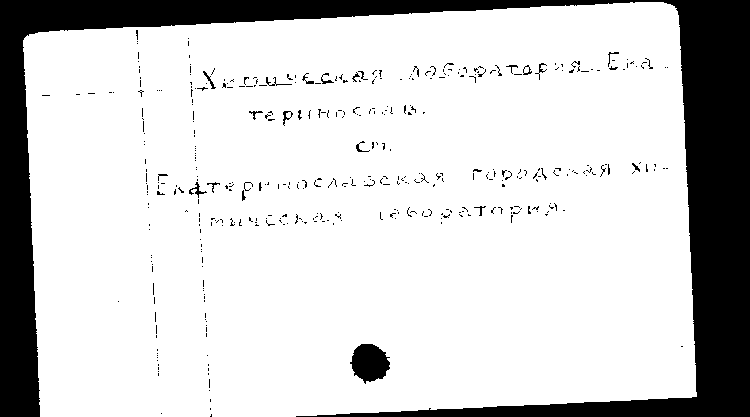 Химическая лаборатория. Ека-
теринослав.
см.
Екатеринославская городская хи-
мическая лаборатория.